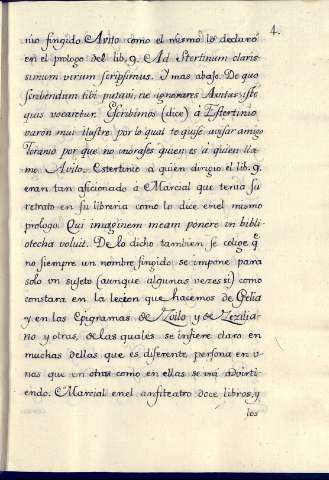 4.
nio fingido Avito como el mismo lo declaro
en el prologo del lib. 9. Ad Stertinium claris-
simum virum scripsimus. I mas abajo. De quo
scribendum tibi putavi, ne ignorares Avitus iste
quis vocaretur. Escribimos (dice) á Estertinio
varon mui ilustre por lo qual te quise avisar amigo
Toranio por que no inorases quien es á quien lla-
mo Avito. Estertinio á quien dirigio el lib. 9.
eran tan aficionado á Marcial que tenia su
retrato en su libreria como lo dice enel mismo
prologo. Qui imaginem meam ponere in bibli-
otecha voluit. De lo dicho tambien se colige q̃
no siempre un nombre fingido se impone para
solo vn sujeto (aunque algunas vezes si) como
constara en la lecion que hacemos de Gelia
y en las Epigramas de Zoilo y de Zezilia-
no y otras, de las quales se infiere claro en
muchas dellas que es diferente persona en v-
nas que en otras como en ellas se ira advirti-
endo. Marcial enel anfiteatro doce libros, y
los